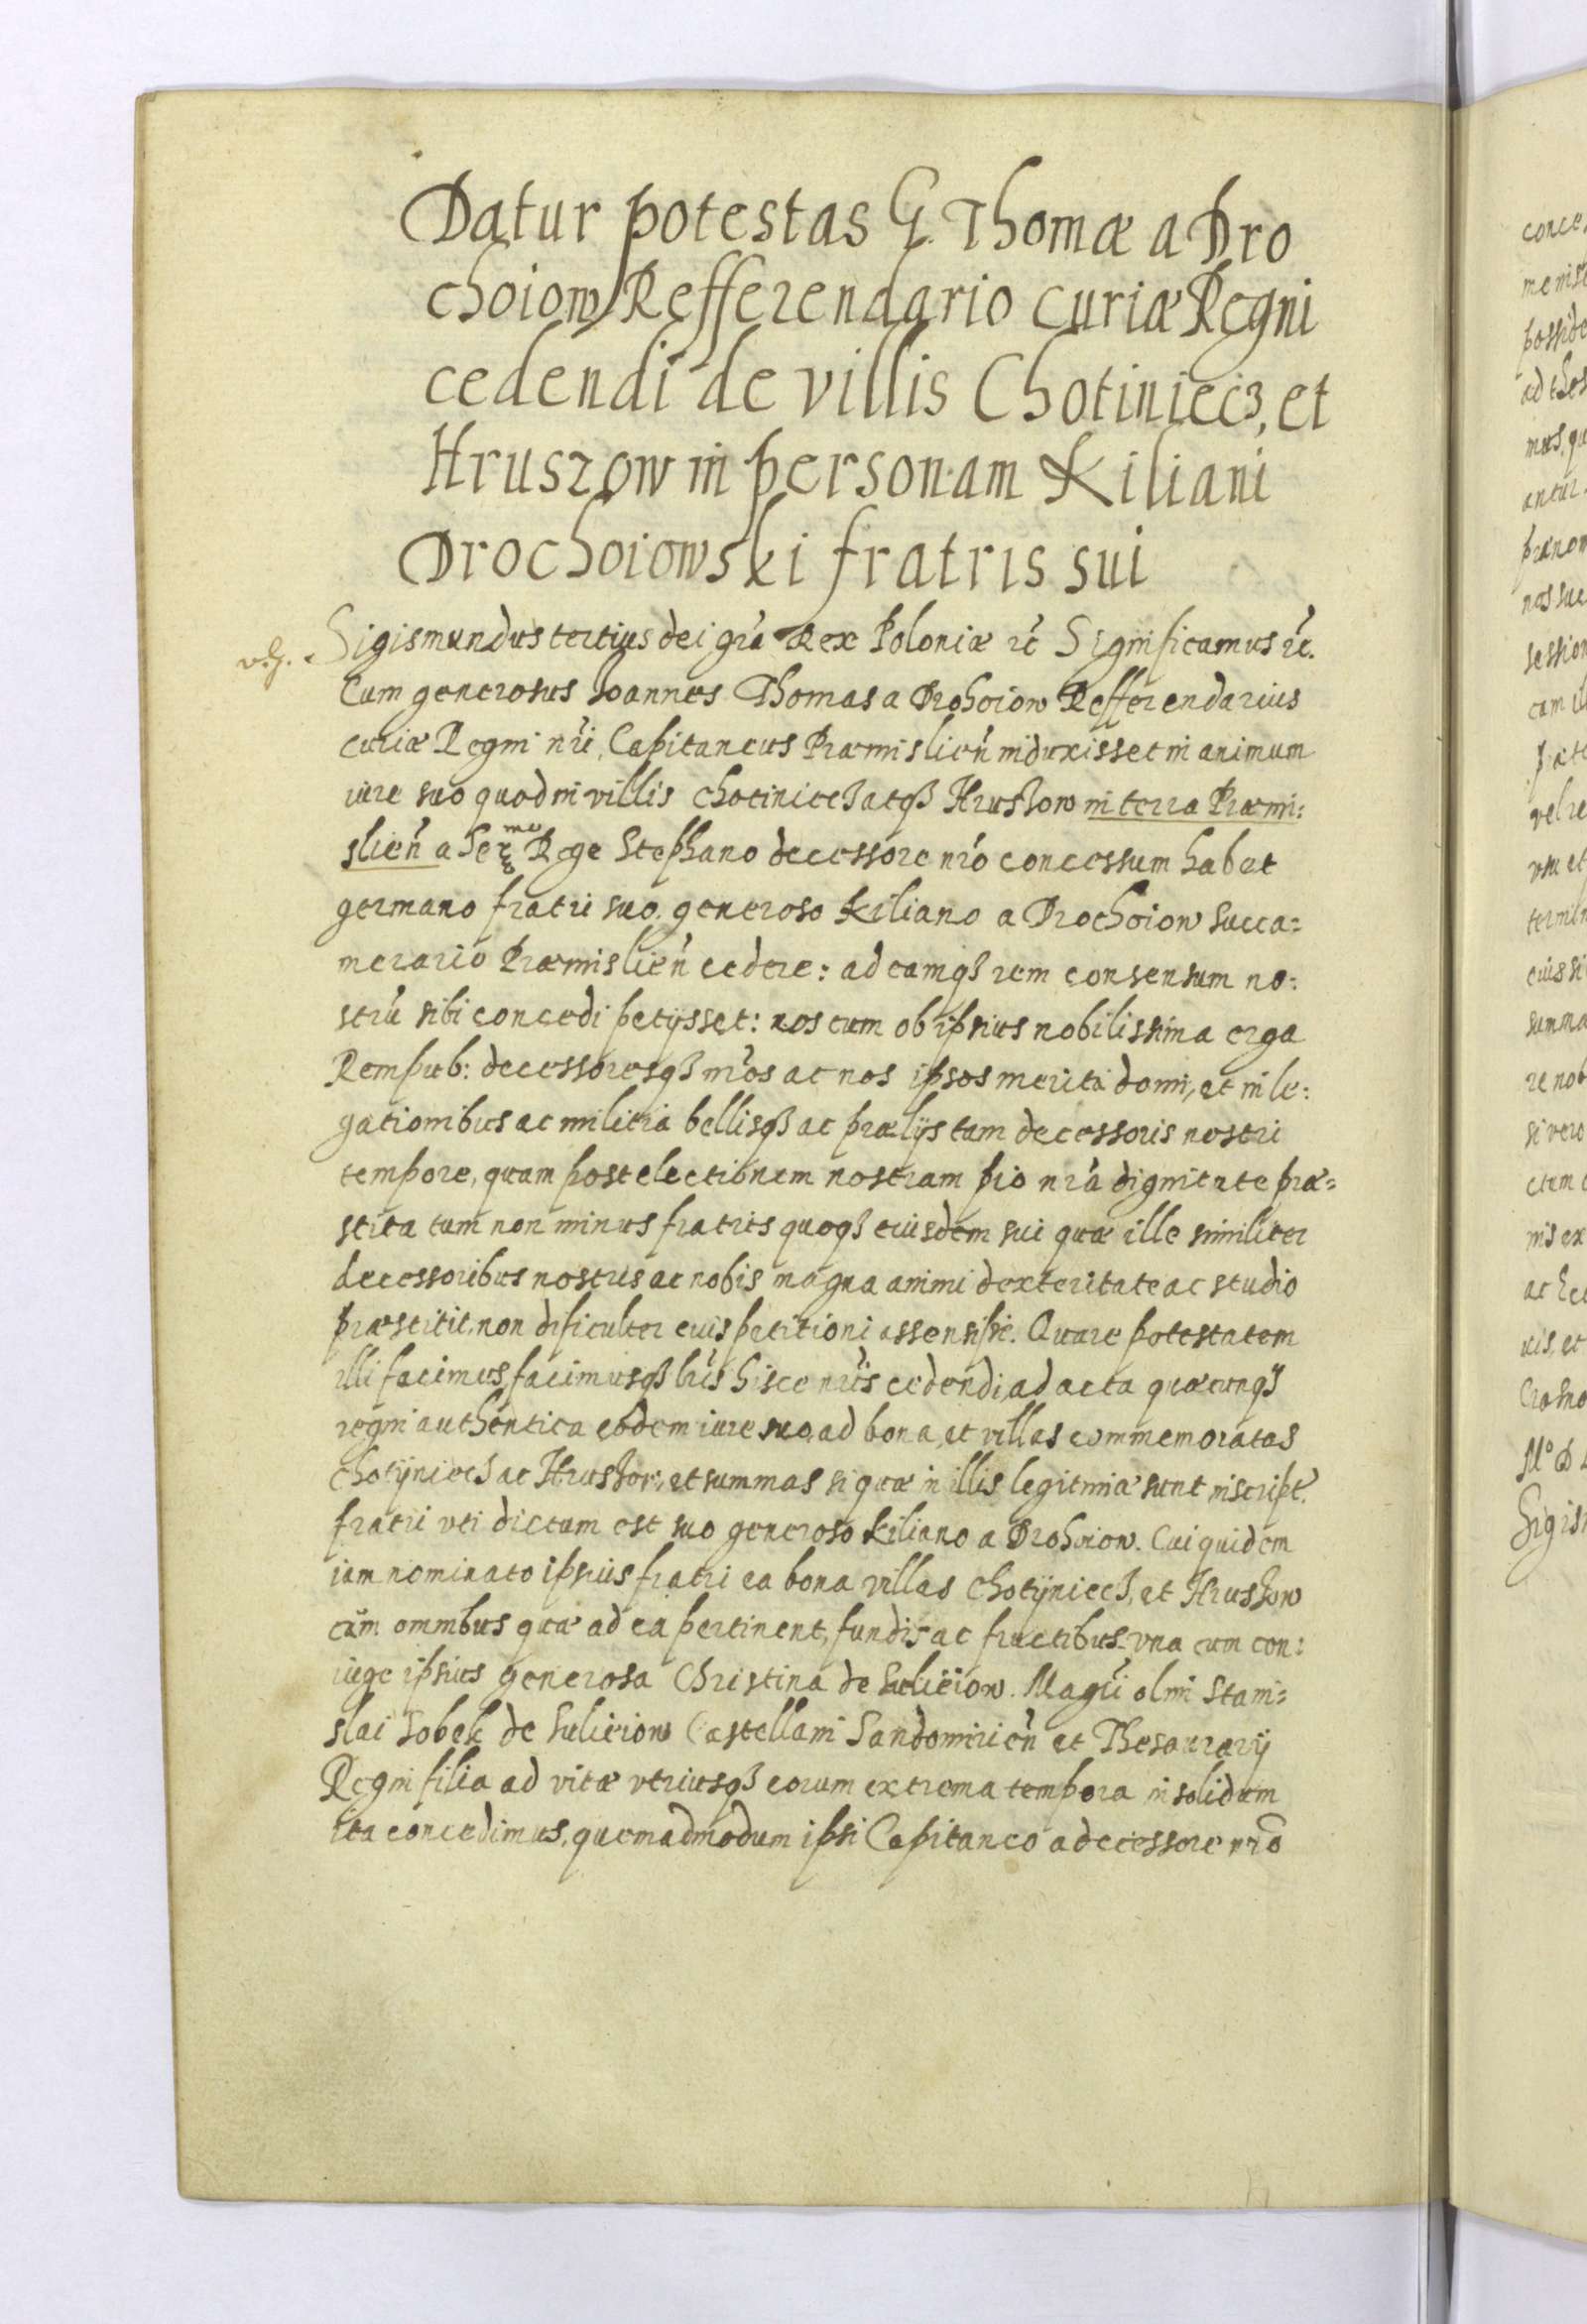 Datur potestas G. Thomæ a Dro
choiow Refferendario curiæ Regni
cedendi de villis Chotiniecz, et
Hruszow in personam Kiliani
Drochoiowski fratris sui
Sigismundus tertius dei gr̃a Rex Poloniæ rc̃ Significamus rc̃.
Cum generosus Ioannes Thomas a Drohoiow Refferendarius
curiæ Regni nr̃i, Capitaneus Præmislien̄ induxisset in animum
iure suo quod in villis Chotiniecz atqȝ Hruszow in terra Præmi:
slien̄ a Ser.mo Rege Stephano decessore nr̃o concessum habet
germano fratri suo generoso Kiliano a Drochoiow Succa=
merario Præmislien̄ cedere: ad eamqȝ rem consensum no:
strū sibi concedi petijsset: nos cum ob ipsius nobilissima erga
Rempub: decessoresqȝ nr̃os ac nos ipsos merita domi, et in le:
gationibus ac militia bellisqȝ ac prælijs tam decessoris nostri
tempore, quam post electionem nostram pro nr̃a dignitate præ=
stita tum non minus fratris quoqȝ eiusdem sui quæ ille similiter
decessoribus nostris ac nobis magna animi dexteritate ac studio
præstitit, non dificulter eius petitioni assensim̃. Quare potestatem
illi facimus, facimusqȝ lr̃is hisce nr̃is cedendi, ad acta quæcunqȝ
regni authentica eodem iure suo, ad bona, et villas commemoratas
Chotijniecz ac Hruszow, et summas si quæ in illis legitimæ sunt inscriptæ
fratri vti dictum est suo generoso Kiliano a Drohoiow. Cui quidem
iam nominato ipsius fratri ea bona villas Chotijniecz, et Hruszow
cum omnibus quæ ad ea pertinent, fundis ac fructibus vna cum con:
iuge ipsius generosa Christina de Sulieiow. Magc̃i olim Stani=
slai Sobek de Sulieiow Castellani Sandomirien̄ et Thesaurarij
Regni filia ad vitæ vtriusqȝ eorum extrema tempora in solidum
ita concedimus, quemadmodum ipsi Capitaneo a decessore nr̃o